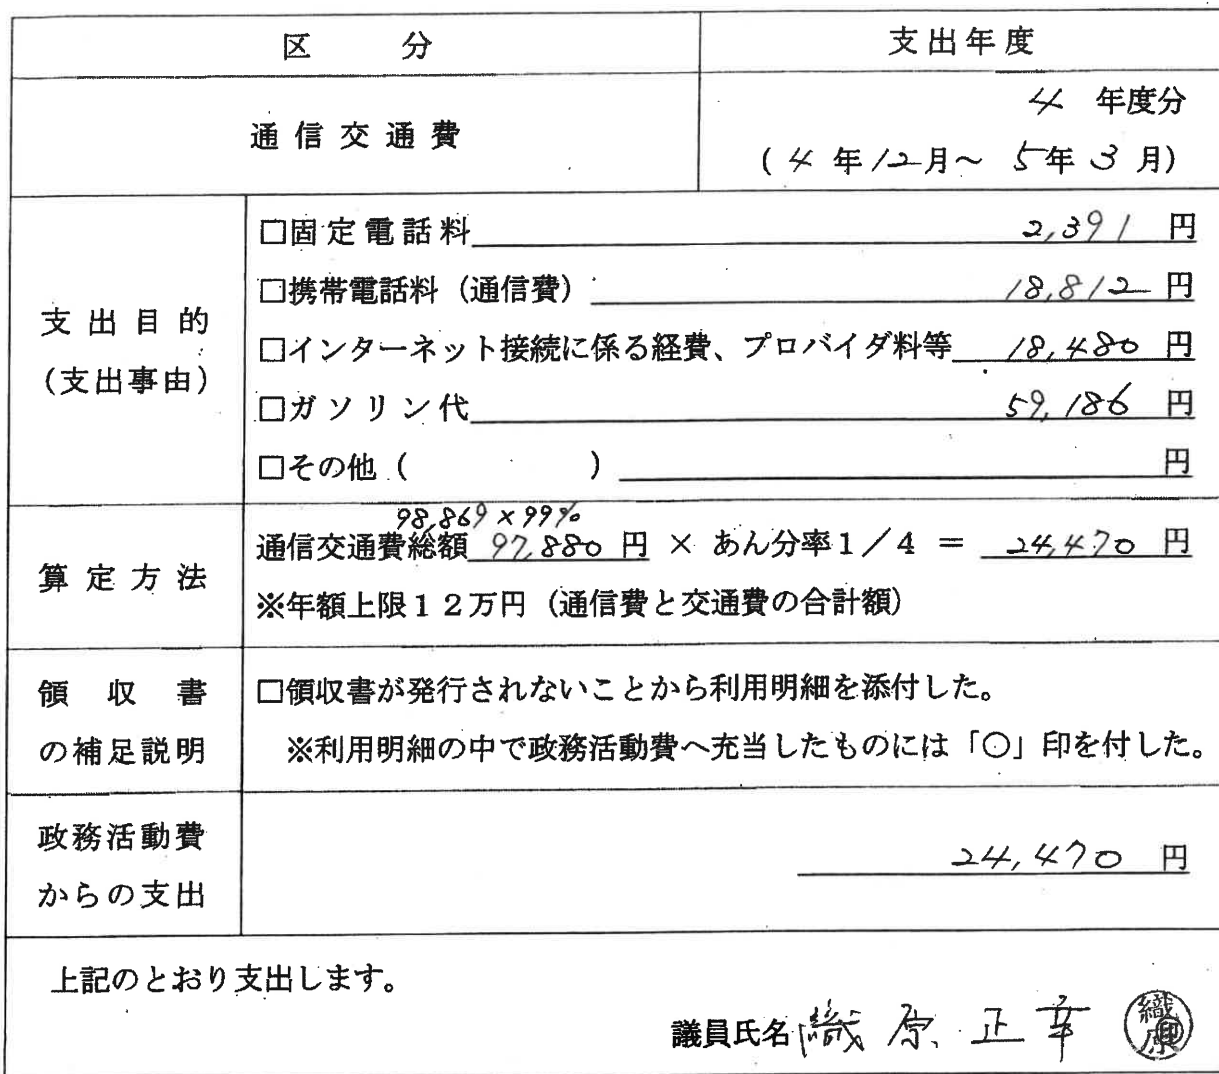 区 分 支出年度
通信交通費
4 年度分
(4年12月～5年3月)
支出目的
(支出事由)
□固定電話料 2,391 円
□携帯電話料（通信費） 18,812 円
□インターネット接続に係る経費、プロバイダ料等 18,480 円
□ガソリン代 59,186 円
□その他（ ） 円
算定方法
98,869×99%
通信交通費総額 97,880 円 × あん分率1／4 ＝ 24,470 円
※年額上限12万円（通信費と交通費の合計額）
領収書
の補足説明
□領収書が発行されないことから利用明細を添付した。
※利用明細の中で政務活動費へ充当したものには「○」印を付した。
政務活動費
からの支出
24,470 円
上記のとおり支出します。
議員氏名 織原 正幸 ㊞
織原